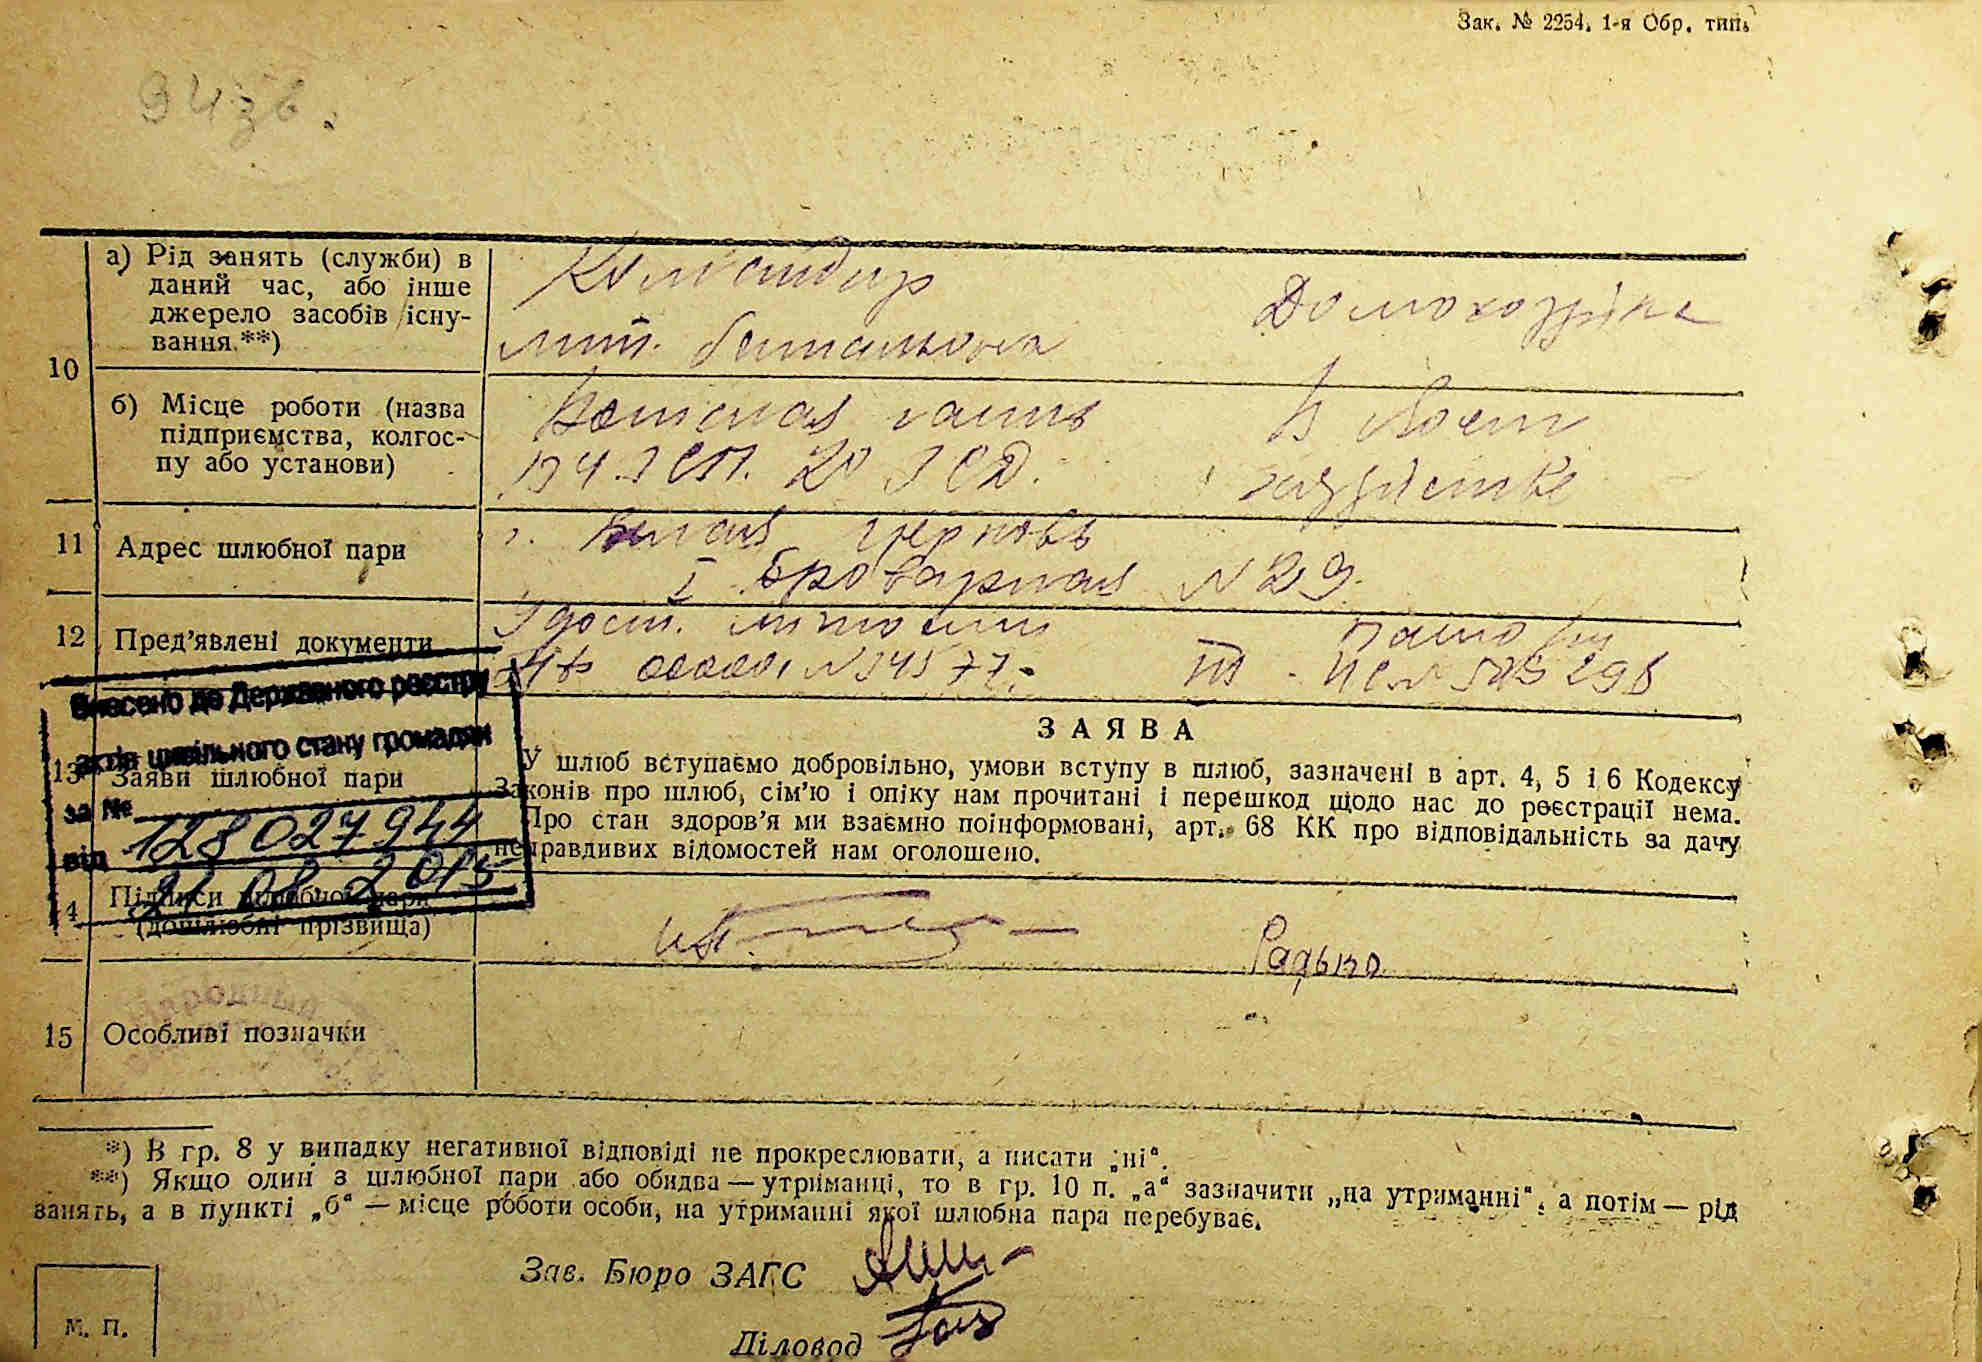 Зак. № 2254. 1-я Обр. тип.
10
а) Рід занять (служби) в
даний час, або інше
джерело засобів існу-
вання.**)
Командир
мит. батальона
Домохозяйка
б) Місце роботи (назва
підприємства, колгос-
пу або установи)
Воинская часть
В дом
хозяйстве
11
Адрес шлюбної пари
г. Белая Церковь
I Броварная N 29.
12
Пред'явлені документи
Удост. личности
паспорт
III
Внесено до Державного реєстру
актів цивільного стану громадян
за № 128027944
від 21.08.2015
13
Заяви шлюбної пари
ЗАЯВА
У шлюб вступаємо добровільно, умови вступу в шлюб, зазначені в арт. 4, 5 і 6 Кодексу
Законів про шлюб, сім'ю і опіку нам прочитані і перешкод щодо нас до реєстрації нема.
Про стан здоров'я ми взаємно поінформовані, арт. 68 КК про відповідальність за дачу
неправдивих відомостей нам оголошено.
14
Підписи шлюбної пари
(дошлюбні прізвища)
Радько
15
Особливі позначки
*) В гр. 8 у випадку негативної відповіді не прокреслювати, а писати „ні“.
**) Якщо один з шлюбної пари або обидва — утриманці, то в гр. 10 п. „а“ зазначити „на утриманні“, а потім — рід
занять, а в пункті „б“ — місце роботи особи, на утриманні якої шлюбна пара перебуває.
Зав. Бюро ЗАГС
М. П.
Діловод